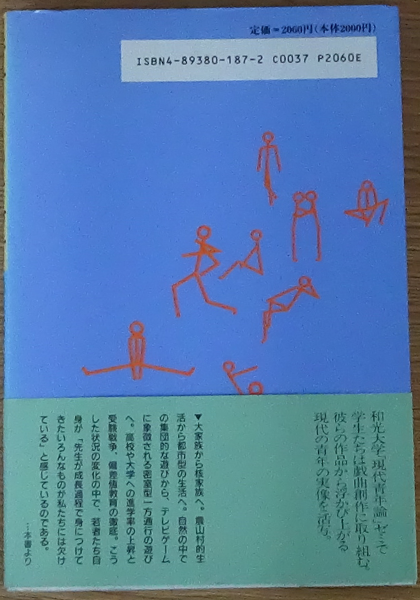 定価＝2060円（本体2000円）
ISBN4-89380-187-2 C0037 P2060E
和光大学「現代青年論」ゼミで
学生たちは戯曲創作に取り組む。
彼らの作品から浮かび上がる
現代の青年の実像を活写。
▼大家族から核家族へ。農山村的生
活から都市型の生活へ。自然の中で
の集団的な遊びから、テレビゲーム
に象徴される密室型一方通行の遊び
へ。高校や大学への進学率の上昇と
受験戦争、偏差値教育の徹底。こう
した状況の変化の中で、若者たち自
身が「先生が成長過程で身につけて
きたいろんなものが私たちには欠け
ている」と感じているのである。
…本書より